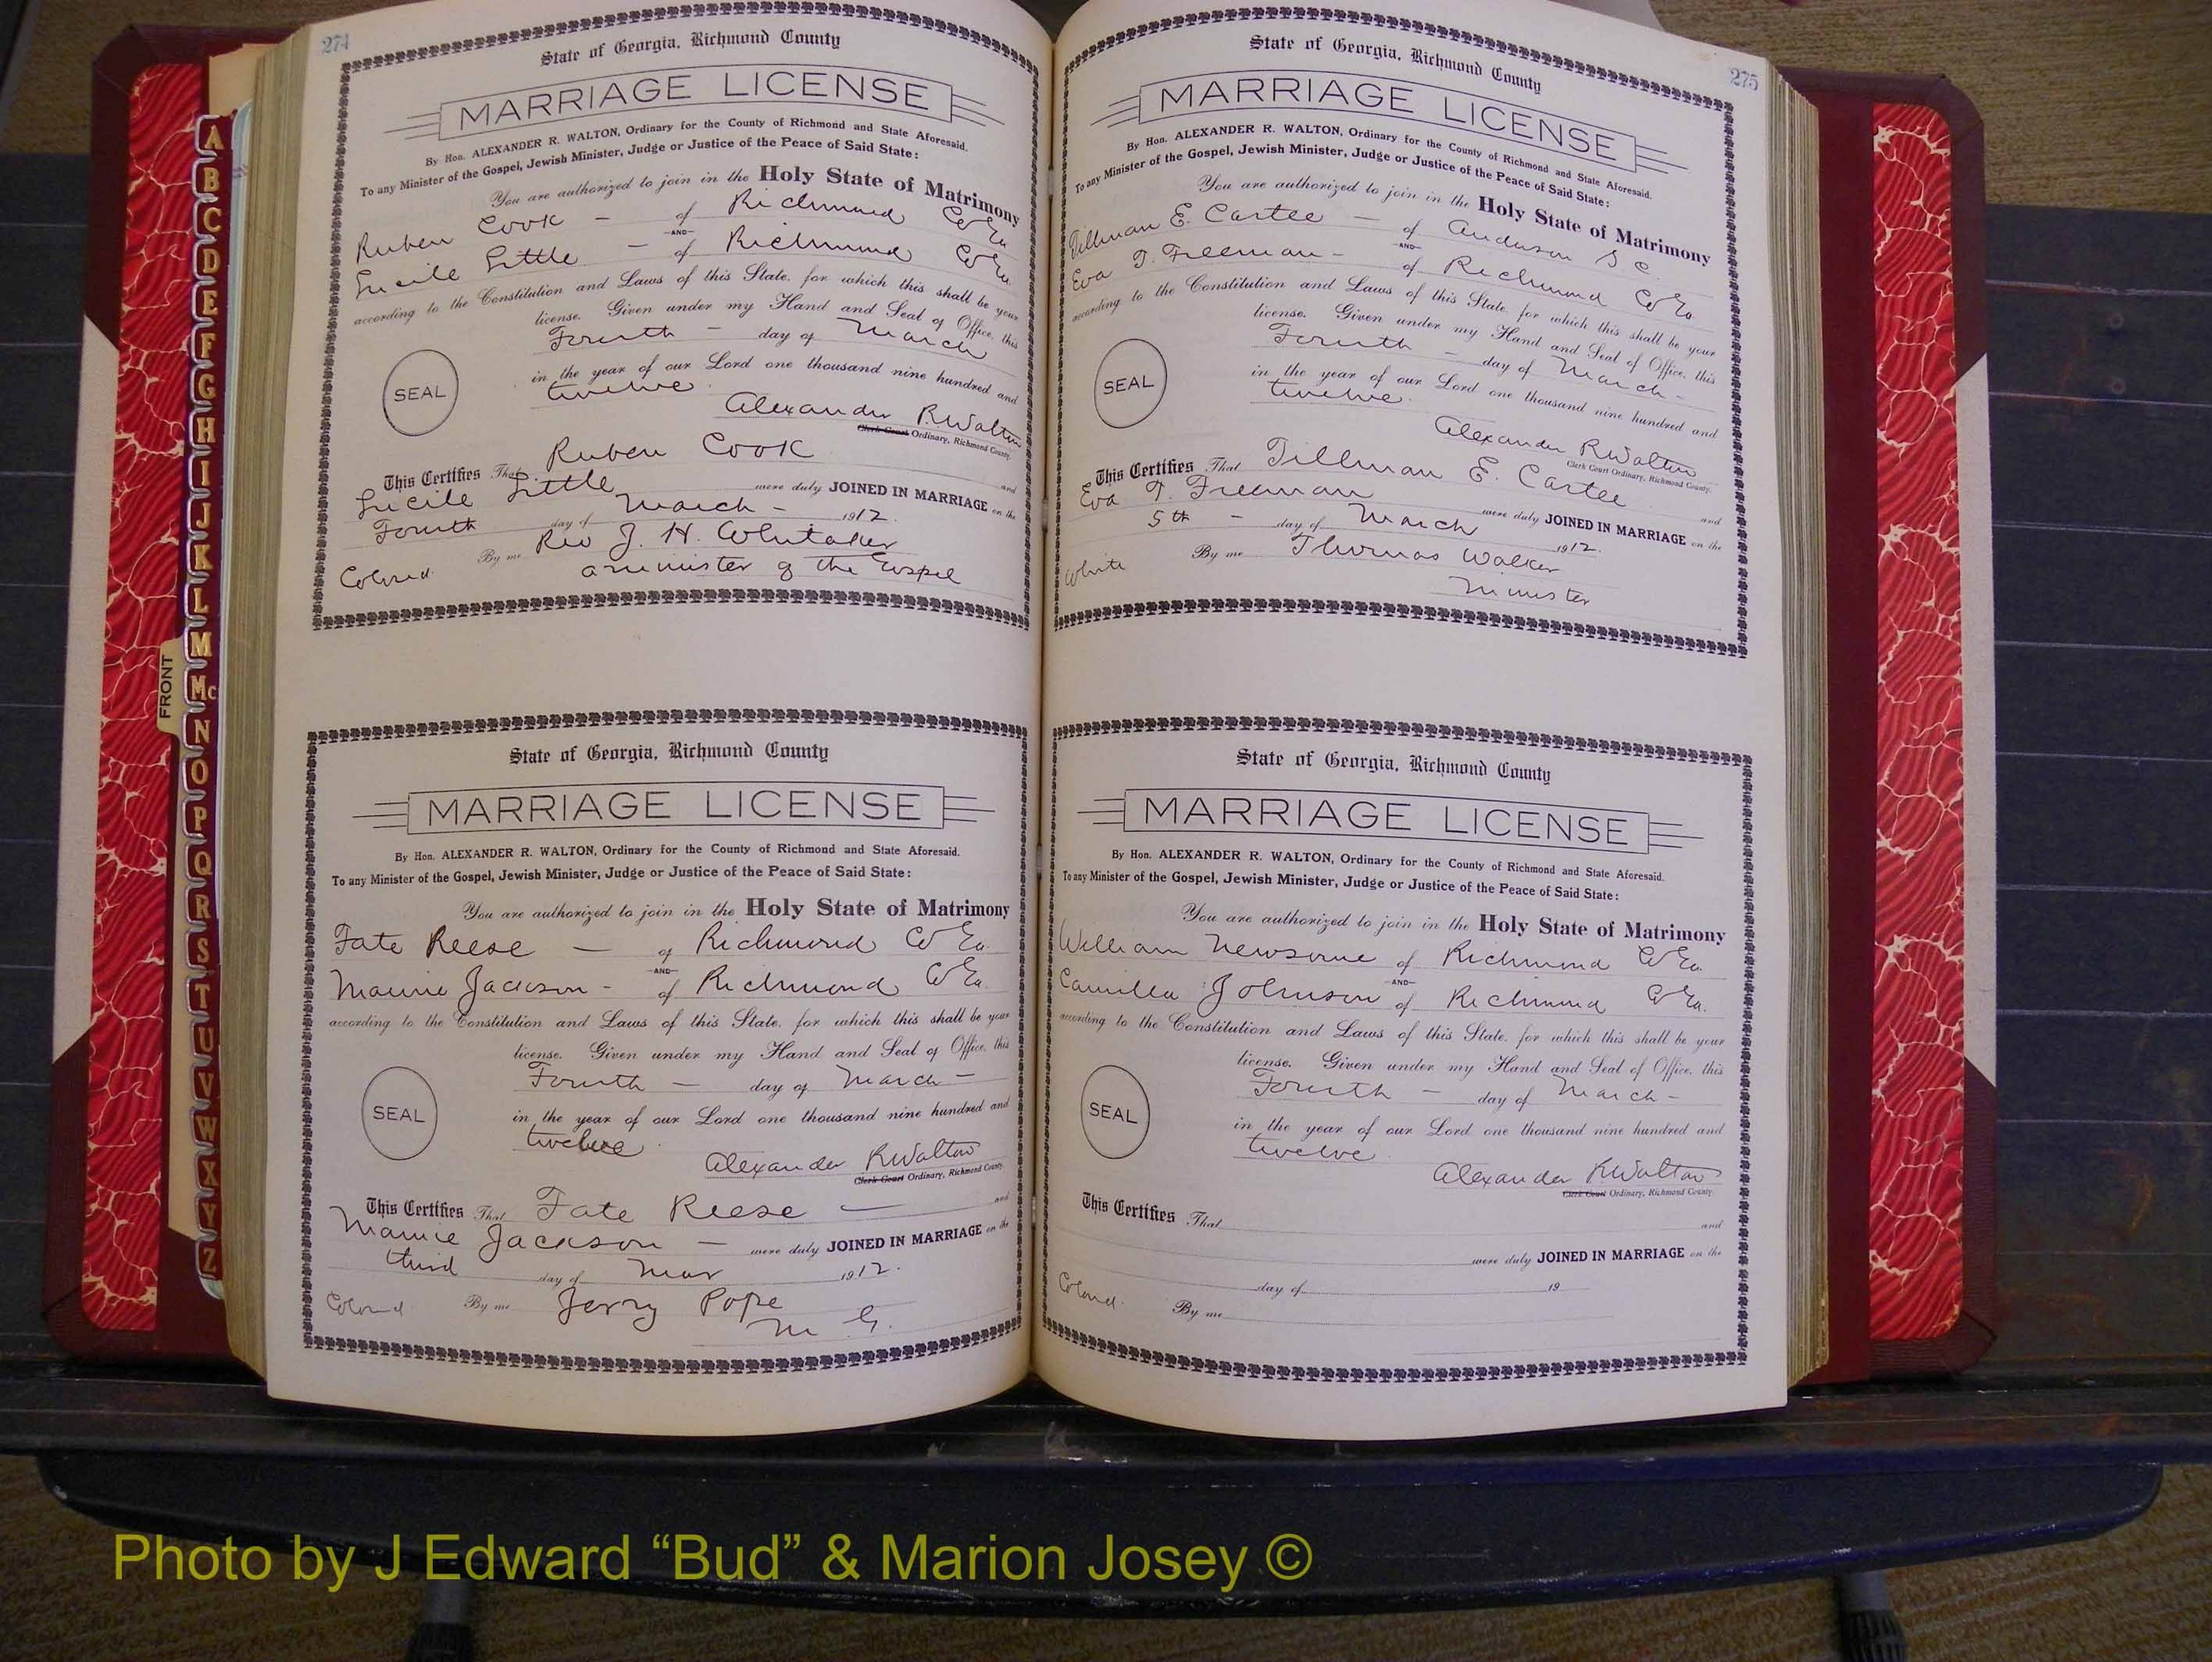 274
State of Georgia, Richmond County
MARRIAGE LICENSE
By Hon. ALEXANDER R. WALTON, Ordinary for the County of Richmond and State Aforesaid.
To any Minister of the Gospel, Jewish Minister, Judge or Justice of the Peace of Said State:
You are authorized to join in the Holy State of Matrimony
Ruben Cook - of Richmond Co Ga
-AND-
Lucile Little - of Richmond Co Ga.
according to the Constitution and Laws of this State, for which this shall be your
license. Given under my Hand and Seal of Office, this
Fourth - day of March
SEAL
in the year of our Lord one thousand nine hundred and
twelve.
Alexander R Walton
Clerk Court Ordinary, Richmond County.
This Certifies That Ruben Cook and
Lucile Little were duly JOINED IN MARRIAGE on the
Fourth day of March - 1912.
By me Rev J. H. Whitaker
Colored a minister of the Gospel
State of Georgia, Richmond County
MARRIAGE LICENSE
By Hon. ALEXANDER R. WALTON, Ordinary for the County of Richmond and State Aforesaid.
To any Minister of the Gospel, Jewish Minister, Judge or Justice of the Peace of Said State:
You are authorized to join in the Holy State of Matrimony
Fate Reese - of Richmond Co Ga.
-AND-
Mamie Jackson - of Richmond Co Ga.
according to the Constitution and Laws of this State, for which this shall be your
license. Given under my Hand and Seal of Office, this
Fourth - day of March -
SEAL
in the year of our Lord one thousand nine hundred and
twelve.
Alexander R Walton
Clerk Court Ordinary, Richmond County.
This Certifies That Fate Reese - and
Mamie Jackson - were duly JOINED IN MARRIAGE on the
third day of Mar 1912.
Colored By me Jerry Pope
M G.
275
State of Georgia, Richmond County
MARRIAGE LICENSE
By Hon. ALEXANDER R. WALTON, Ordinary for the County of Richmond and State Aforesaid.
To any Minister of the Gospel, Jewish Minister, Judge or Justice of the Peace of Said State:
You are authorized to join in the Holy State of Matrimony
Tillman E. Cartee - of Anderson S C.
-AND-
Eva T. Freeman - of Richmond Co Ga
according to the Constitution and Laws of this State, for which this shall be your
license. Given under my Hand and Seal of Office, this
Fourth - day of March -
SEAL
in the year of our Lord one thousand nine hundred and
twelve.
Alexander R Walton
Clerk Court Ordinary, Richmond County.
This Certifies That Tillman E. Cartee and
Eva T. Freeman were duly JOINED IN MARRIAGE on the
5th - day of March 1912.
White By me Thomas Walker
Minister
State of Georgia, Richmond County
MARRIAGE LICENSE
By Hon. ALEXANDER R. WALTON, Ordinary for the County of Richmond and State Aforesaid.
To any Minister of the Gospel, Jewish Minister, Judge or Justice of the Peace of Said State:
You are authorized to join in the Holy State of Matrimony
William Newsome of Richmond Co Ga.
-AND-
Camilla Johnson of Richmond Co Ga.
according to the Constitution and Laws of this State, for which this shall be your
license. Given under my Hand and Seal of Office, this
Fourth - day of March -
SEAL
in the year of our Lord one thousand nine hundred and
twelve.
Alexander R Walton
Clerk Court Ordinary, Richmond County.
This Certifies That and
were duly JOINED IN MARRIAGE on the
day of 19
Colored. By me
FRONT
A
B
C
D
E
F
G
H
I
J
K
L
M
Mc
N
O
P
Q
R
S
T
U
V
W
X
Y
Z
Photo by J Edward “Bud” & Marion Josey ©